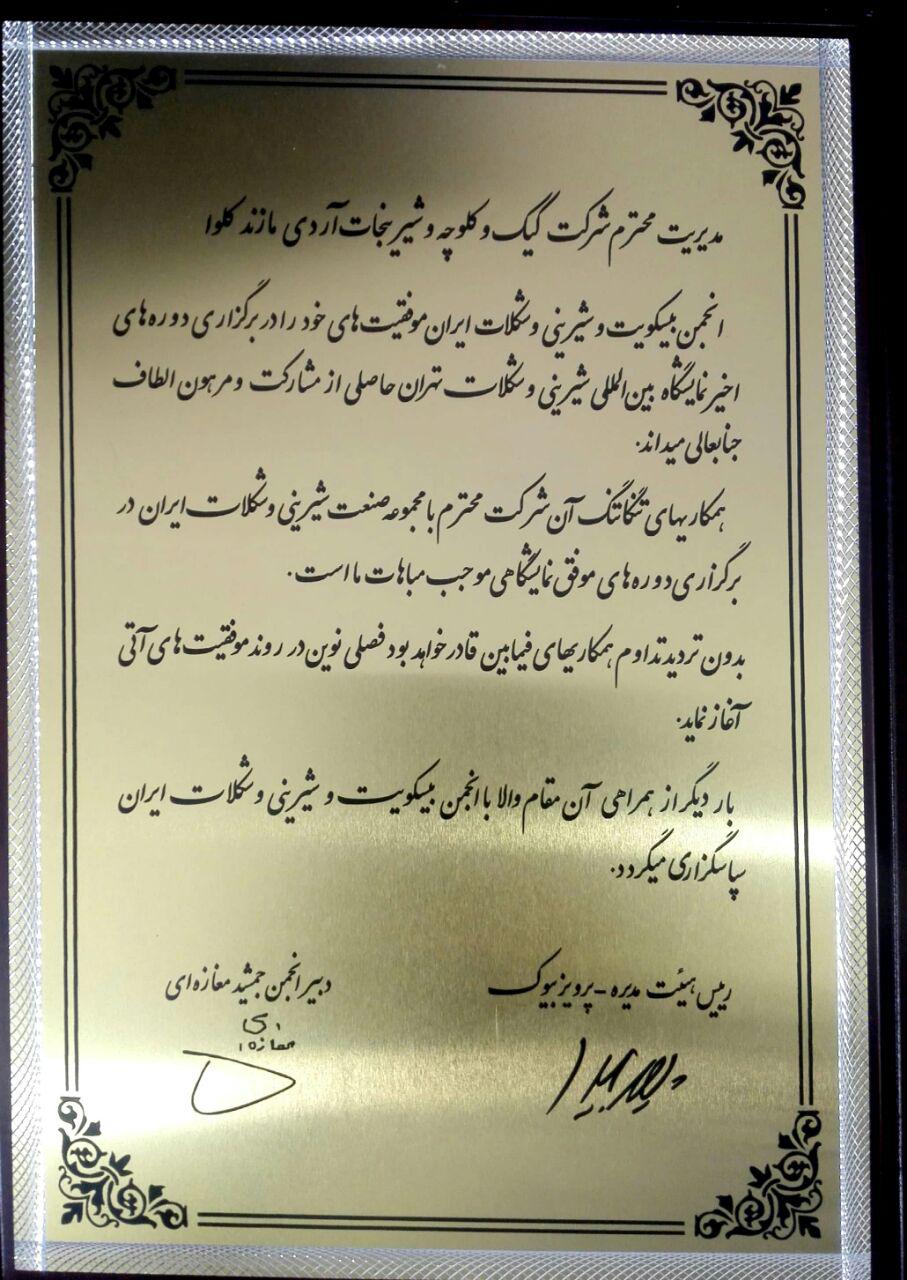 مدیریت محترم شرکت کیک و کلوچه و شیرینجات آردی مازند کلوا
انجمن بیسکویت و شیرینی و شکلات ایران موفقیت های خود را در برگزاری دوره های
اخیر نمایشگاه بین المللی شیرینی و شکلات تهران حاصلی از مشارکت و مرهون الطاف
جنابعالی میداند.
همکاریهای تنگاتنگ آن شرکت محترم با مجموعه صنعت شیرینی و شکلات ایران در
برگزاری دوره های موفق نمایشگاهی موجب مباهات ما است.
بدون تردید تداوم همکاریهای فیمابین قادر خواهد بود فصلی نوین در روند موفقیت های آتی
آغاز نماید.
بار دیگر از همراهی آن مقام والا با انجمن بیسکویت و شیرینی و شکلات ایران
سپاسگزاری میگردد.
رییس هیئت مدیره - پرویز بیوک
دبیر انجمن جمشید مغازه ای